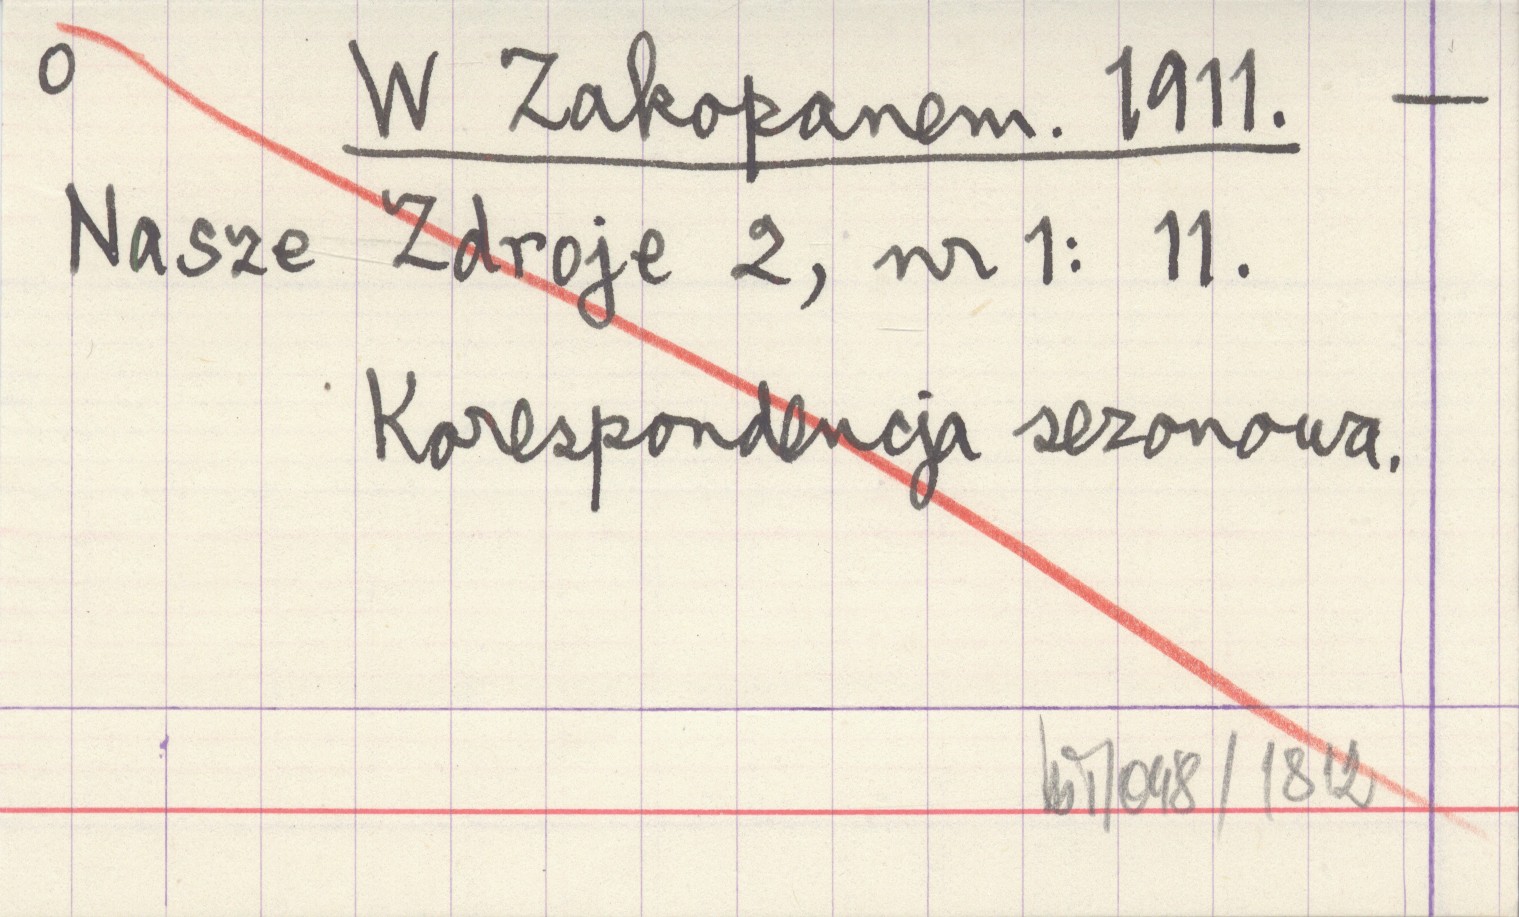 o W Zakopanem. 1911. —
Nasze Zdroje 2, nr 1: 11.
Korespondencja sezonowa.
048 / 1812